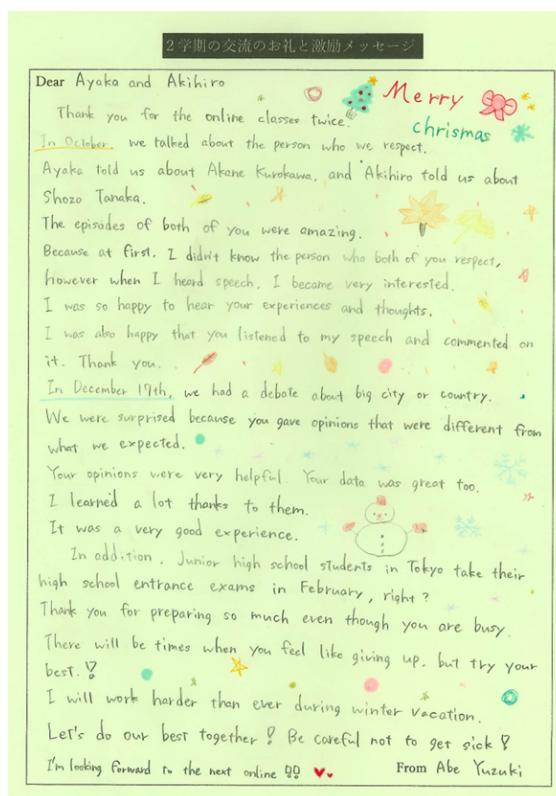 2学期の交流のお礼と激励メッセージ
Dear Ayaka and Akihiro
Merry
chrismas
Thank you for the online classes twice.
In October, we talked about the person who we respect.
Ayaka told us about Akane Kurokawa, and Akihiro told us about
Shozo Tanaka.
The episodes of both of you were amazing.
Because at first, I didn't know the person who both of you respect,
however when I heard speech, I became very interested.
I was so happy to hear your experiences and thoughts.
I was also happy that you listened to my speech and commented on
it. Thank you.
In December 17th, we had a debate about big city or country.
We were surprised because you gave opinions that were different from
what we expected.
Your opinions were very helpful. Your data was great too.
I learned a lot thanks to them.
It was a very good experience.
In addition, Junior high school students in Tokyo take their
high school entrance exams in February, right?
Thank you for preparing so much even though you are busy.
There will be times when you feel like giving up. but try your
best.!
I will work harder than ever during winter vacation.
Let's do our best together! Be careful not to get sick!
I'm looking forward to the next online!!
From Abe Yuzuki